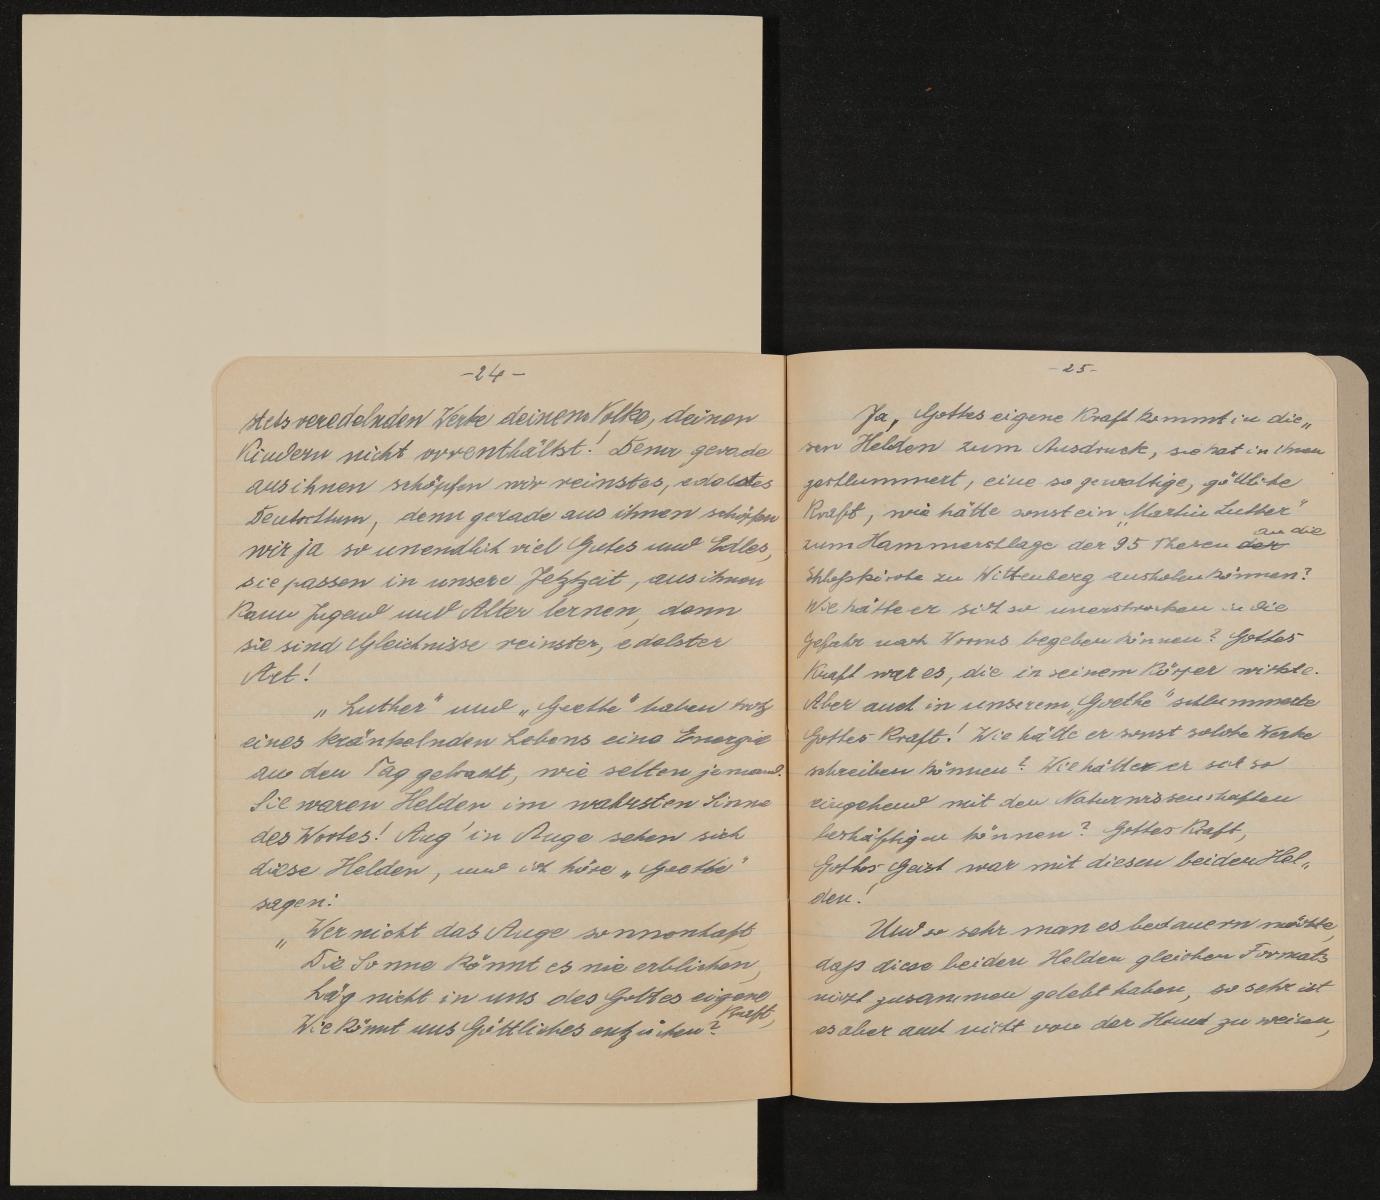 -24-
stets veredelnden Werke deinem Volke, deinen
Kindern nicht vorenthältst! Denn gerade
aus ihnen schöpfen wir reinstes, edelstes
Deutschtum, denn gerade aus ihnen schöpfen
wir ja so unendlich viel Gutes und Edles,
sie passen in unsere Jetztzeit, aus ihnen
kann Jugend und Alter lernen, denn
sie sind Gleichnisse reinster, edelster
Art!
„Luther" und „Goethe" haben trotz
eines kränkelnden Lebens eine Energie
an den Tag gebracht, wie selten jemand.
Sie waren Helden im wahrsten Sinne
des Wortes! Aug' in Auge sehen sich
diese Helden, und ich höre „Goethe"
sagen:
„Wer nicht das Auge sonnenhaft,
Die Sonne könnt es nie erblicken,
Läg nicht in uns des Gottes eigene
Kraft,
Wie könnt uns Göttliches entzücken?
-25-
Ja, Gottes eigene Kraft kommt in die„
sen Helden zum Ausdruck, sie hat in ihnen
geschlummert, eine so gewaltige, göttliche
Kraft, wie hätte sonst ein „Martin Luther"
zum Hammerschlage der 95 Thesen der an die
Schloßkirche zu Wittenberg ausholen können?
Wie hätte er sich so unerschrocken in die
Gefahr nach Worms begeben können? Gottes
Kraft war es, die in seinem Körper wirkte.
Aber auch in unserem „Goethe" schlummerte
Gottes Kraft! Wie hätte er sonst solche Werke
schreiben können? Wie hätte er sich so
eingehend mit den Naturwissenschaften
beschäftigen können? Gottes Kraft,
Gottes Geist war mit diesen beiden Hel„
den!
Und so sehr man es bedauern möchte,
daß diese beiden Helden gleichen Formats
nicht zusammen gelebt haben, so sehr ist
es aber auch nicht von der Hand zu weisen,